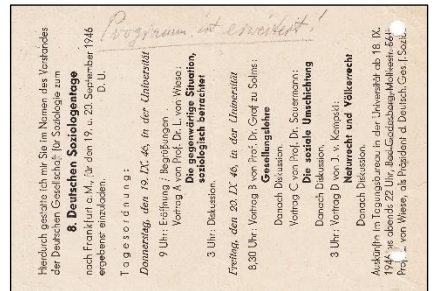 Programm ist erweitert!
Hierdurch gestatte ich mir Sie im Namen des Vorstandes
der Deutschen Gesellschaft für Soziologie zum
8. Deutschen Soziologentage
nach Frankfurt a. M., für den 19. u. 20. September 1946
ergebenst einzuladen. D. U.
Tagesordnung:
Donnerstag, den 19. IX. 46, in der Universität
9 Uhr: Eröffnung / Begrüßungen
Vortrag A von Prof. Dr. L. von Wiese:
Die gegenwärtige Situation,
soziologisch betrachtet
3 Uhr: Diskussion.
Freitag, den 20. IX 46, in der Universität
8,30 Uhr: Vortrag B von Prof. Dr. Graf zu Solms:
Gesellungslehre
Danach Diskussion.
Vortrag C von Prof. Dr. Sauermann:
Die soziale Umschichtung
Danach Diskussion.
3 Uhr: Vortrag D von J. v. Kempski:
Naturrecht und Völkerrecht
Danach Diskussion.
Auskünfte im Tagungsbureau in der Universität ab 18. IX.
1946 abends 22 Uhr, Bad Godesberg,
von Wiese, als Präsident d. Deutsch. Ges. f. Soziol.